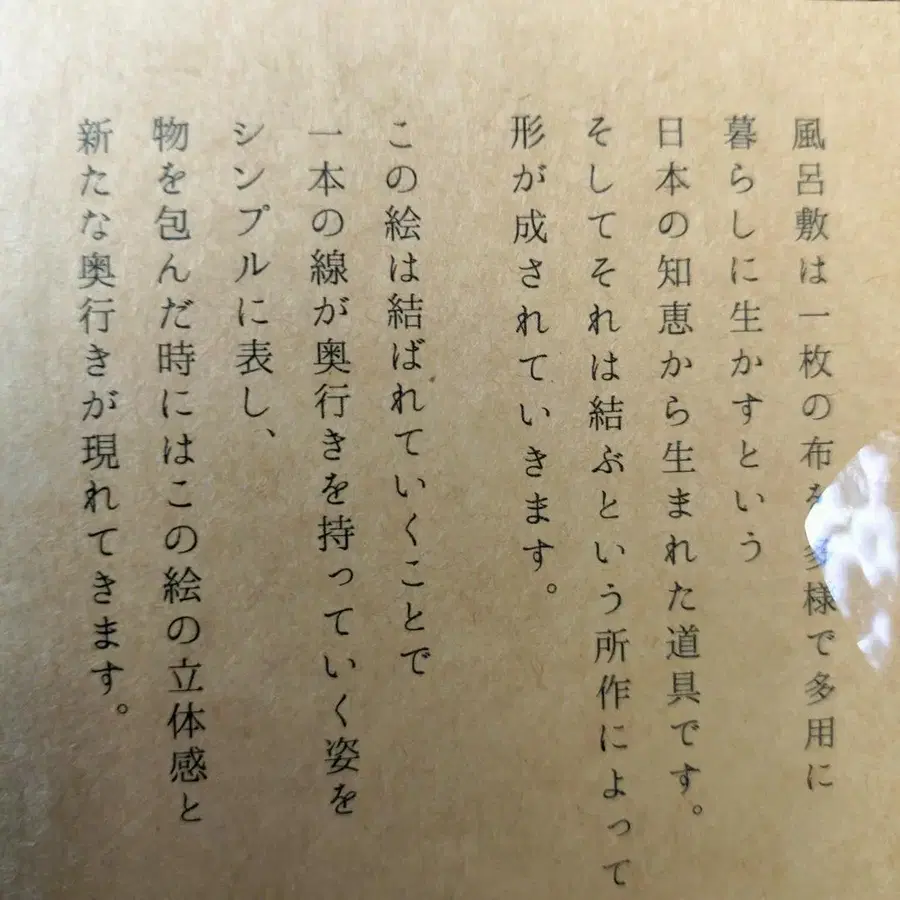 風呂敷は一枚の布を多様で多用に
暮らしに生かすという
日本の知恵から生まれた道具です。
そしてそれは結ぶという所作によって
形が成されていきます。
この絵は結ばれていくことで
一本の線が奥行きを持っていく姿を
シンプルに表し、
物を包んだ時にはこの絵の立体感と
新たな奥行きが現れてきます。